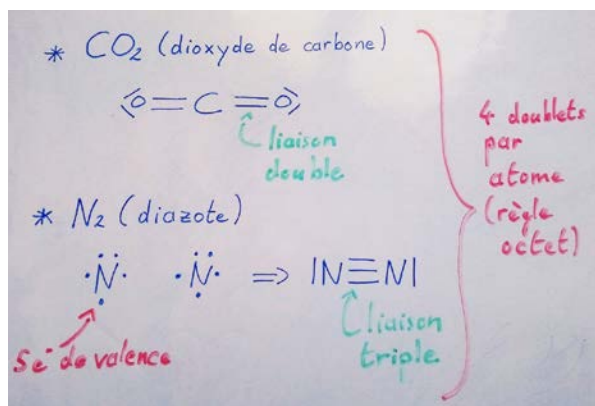 * CO₂ (dioxyde de carbone)
O=C=O
liaison
double
* N₂ (diazote)
N N ⇒ |N≡N|
liaison
triple
5e⁻ de valence
4 doublets
par
atome
(règle
octet)